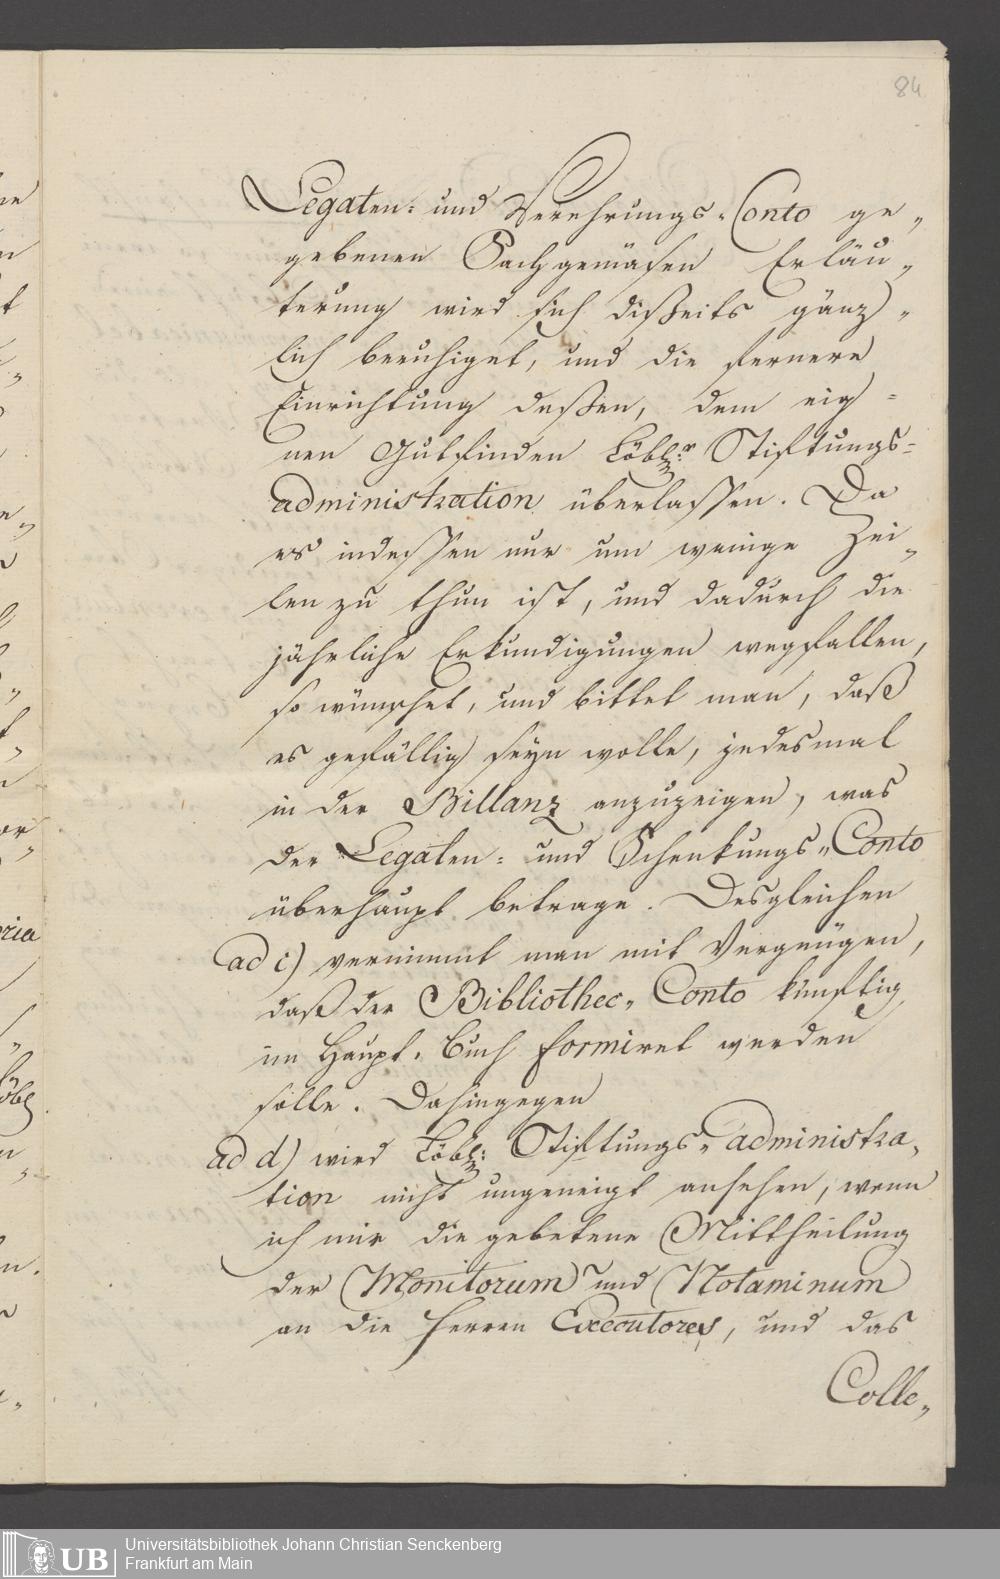 84
Legaten- und Verehrungs-Conto ge„
gebenen Sachgemäsen Erläu„
terung wird sich disseits gänz„
lich beruhiget, und die fernere
Einrichtung deßen, dem eig=
nen Gutfinden Löbl:r Stiftungs=
administration überlassen. Da
es indessen nur um wenige Zei„
len zu thun ist, und dadurch die
jährliche Erkundigungen wegfallen,
so wünschet, und bittet man, daß
es gefällig seyn wolle, jedesmal
in der Billanz anzuzeigen, was
der Legaten- und Schenkungs„Conto
überhaupt betrage. Desgleichen
ad c) vernimmt man mit Vergnügen,
daß der Bibliothec„ Conto künftig
im Haupt-Buch formiret werden
solle. Dahingegen
ad d) wird Löbl: Stiftungs„administra„
tion nicht ungeneigt ansehen, wenn
ich mir die gebetene Mittheilung
der Monitorum und Notaminum
an die Herren Executores, und das
Colle„
Universitätsbibliothek Johann Christian Senckenberg
Frankfurt am Main
UB